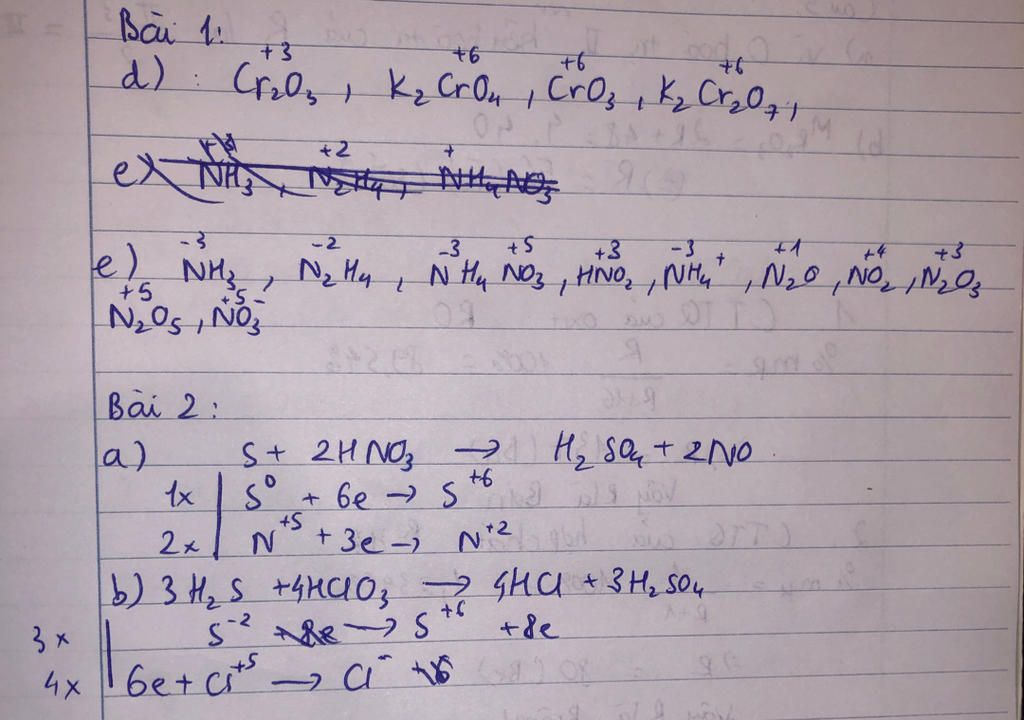 Bài 1:
+3 +6 +6 +6
d) : Cr2O3 , K2CrO4 , CrO3 , K2Cr2O7 ,
+2 +
e) NH3 , N2H4 , NH4NO3
-3 -2 -3 +5 +3 -3 +1 +4 +3
e) NH3 , N2H4 , NH4NO3 , HNO2 , NH4+ , N2O , NO2 , N2O3
+5 +5
N2O5 , NO3-
Bài 2:
a) S + 2HNO3 → H2SO4 + 2NO
1x | S0 + 6e → S+6
2x | N+5 + 3e → N+2
b) 3H2S + 4HClO3 → 4HCl + 3H2SO4
3x | S-2 +8e → S+6 +8e
4x | 6e + Cl+5 → Cl- +6